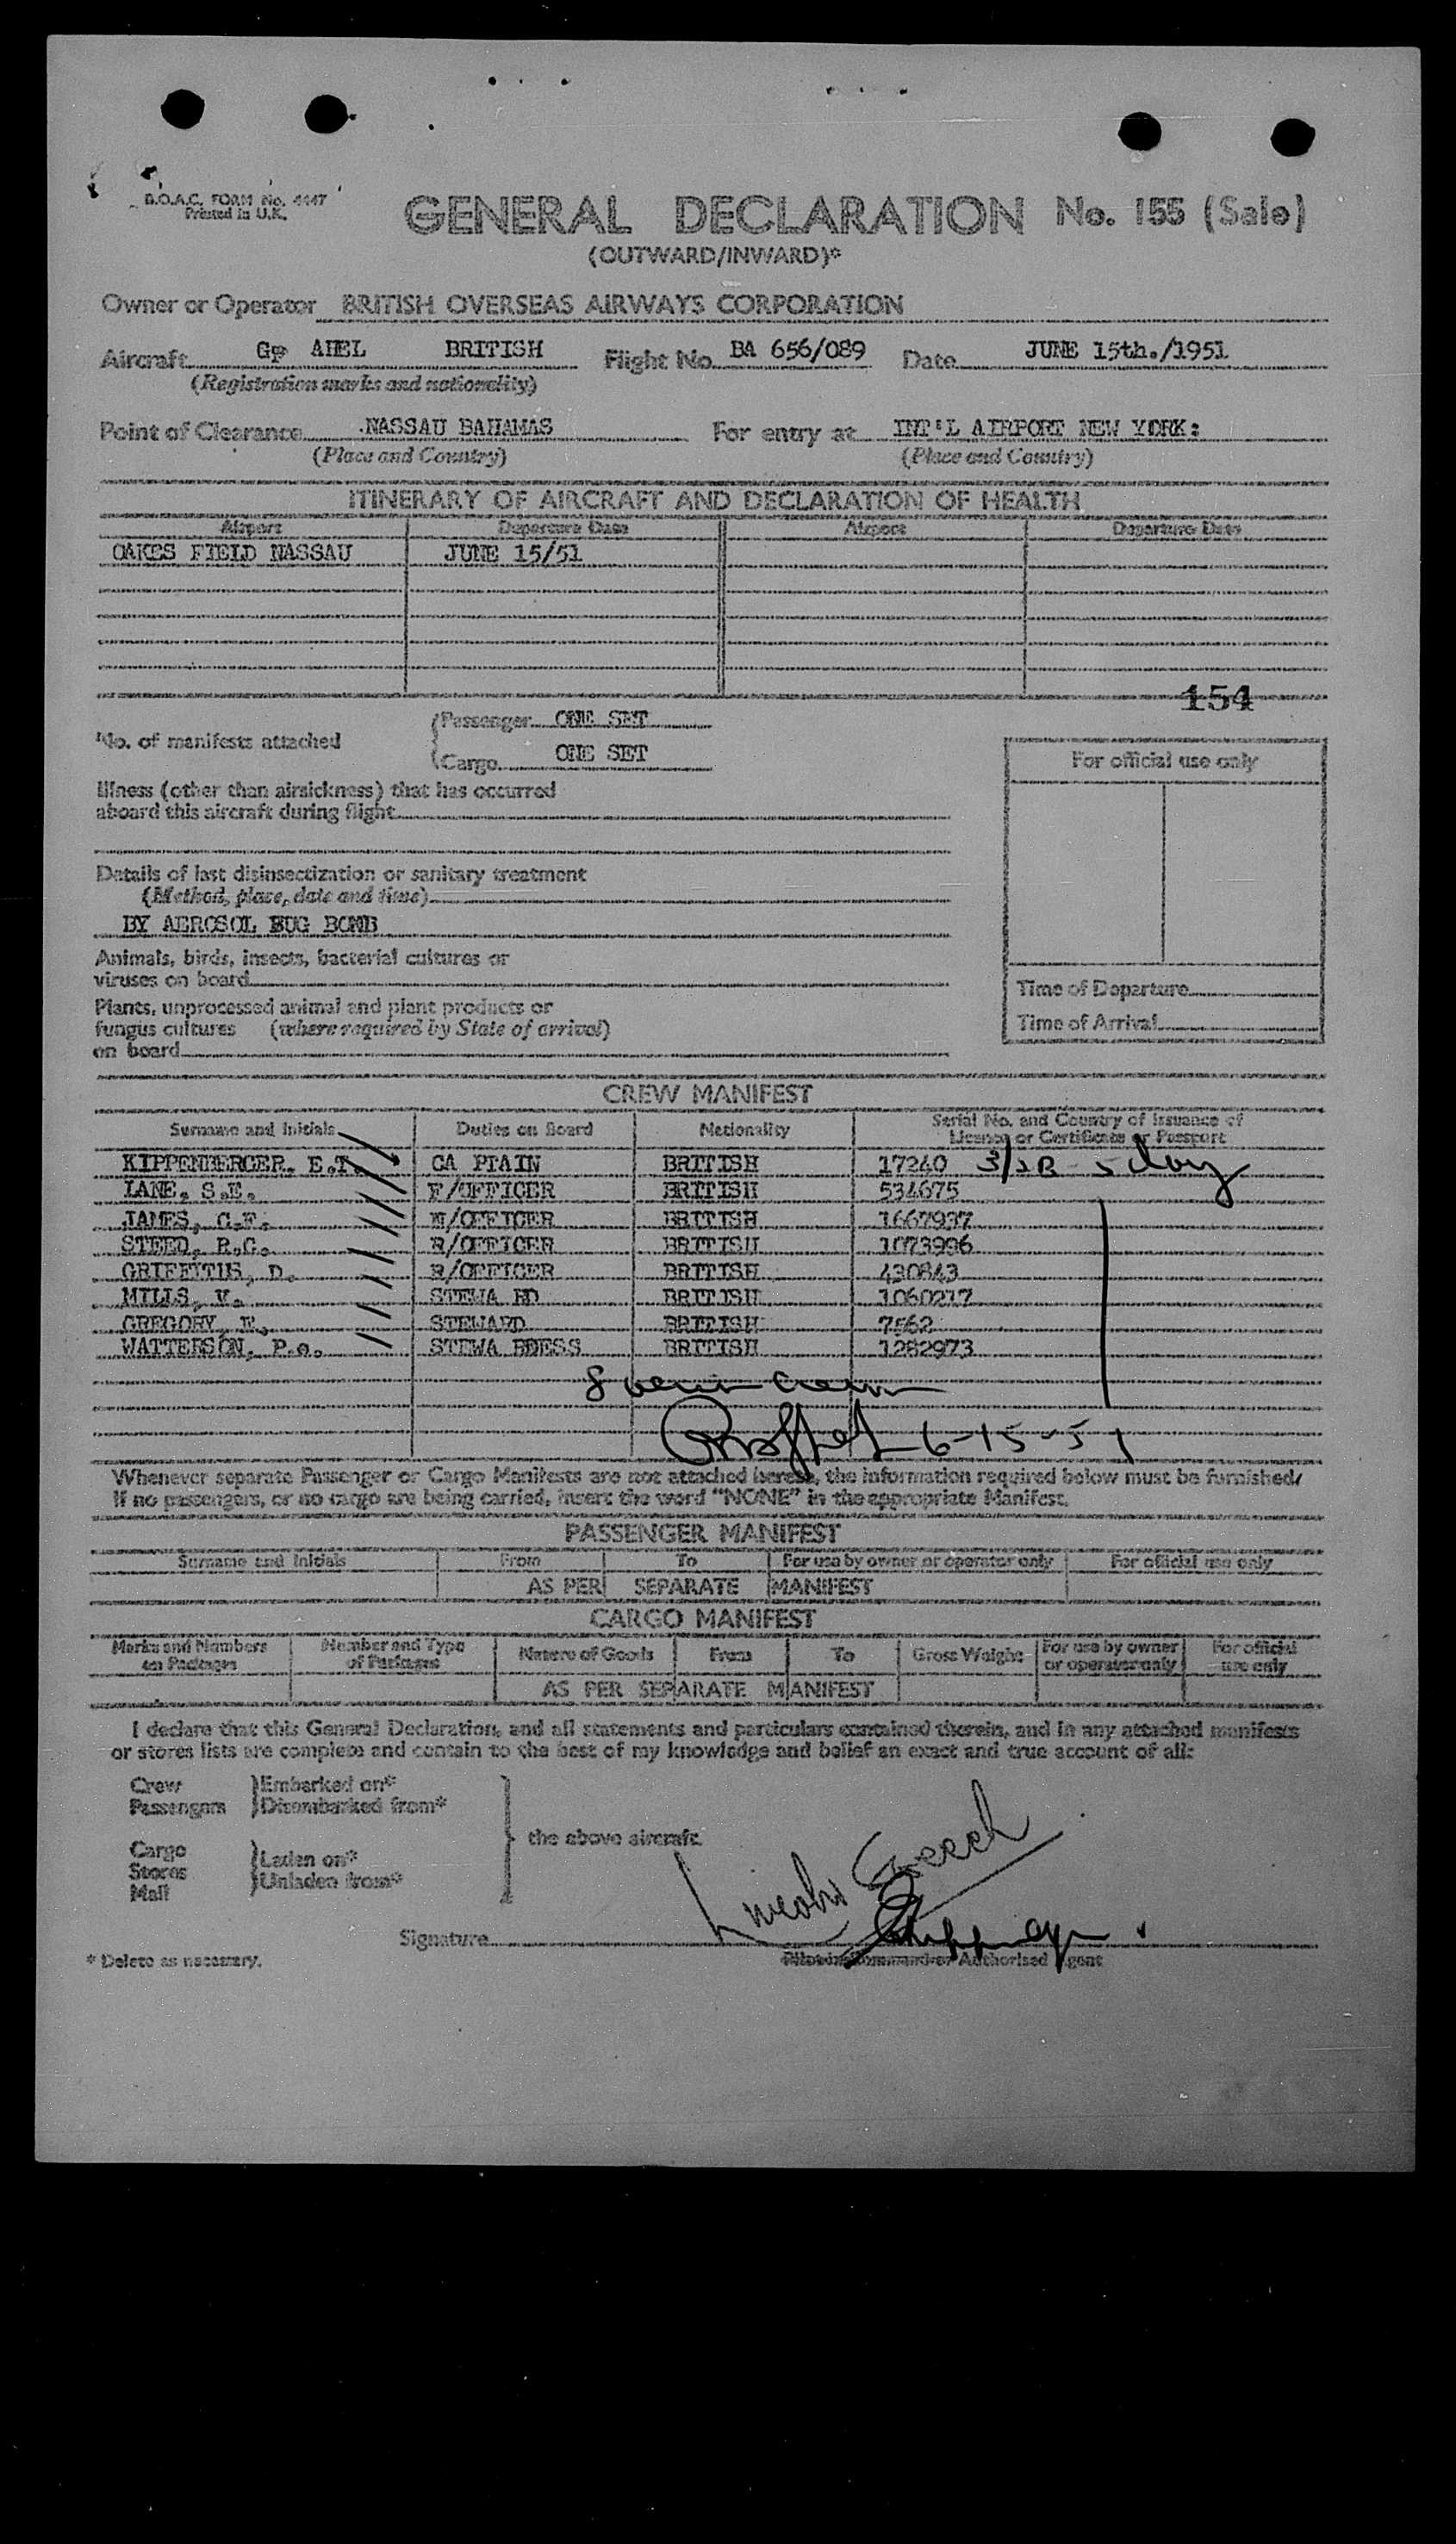 B.O.A.C. FORM No. 4447
Printed in U.K.
GENERAL DECLARATION No. 155 (Sale)
(OUTWARD/INWARD)*
Owner or Operator BRITISH OVERSEAS AIRWAYS CORPORATION
Aircraft AHEL BRITISH Flight No. BA 656/089 Date JUNE 15th./1951
(Registration marks and nationality)
Point of Clearance NASSAU BAHAMAS For entry at INT'L AIRPORT NEW YORK:
(Place and Country) (Place and Country)
ITINERARY OF AIRCRAFT AND DECLARATION OF HEALTH
Airport Departure Date Airport Departure Date
OAKES FIELD NASSAU JUNE 15/51
154
No. of manifests attached
Passenger ONE SET
Cargo ONE SET
For official use only
Illness (other than airsickness) that has occurred
aboard this aircraft during flight
Details of last disinsectization or sanitary treatment
(Method, place, date and time)
BY AEROSOL BUG BOMB
Animals, birds, insects, bacterial cultures or
viruses on board
Plants, unprocessed animal and plant products or
fungus cultures (where required by State of arrival)
on board
Time of Departure
Time of Arrival
CREW MANIFEST
Surname and Initials Duties on Board Nationality Serial No. and Country of Issuance of
Licence or Certificate or Passport
KIPPENBERGER. E.T. CA PTAIN BRITISH 17240
LANE. S.E. F/OFFICER BRITISH 534675
JAMES, C.F. /OFFICER BRITISH 1667937
STEED, R.G. R/OFFICER BRITISH 1073996
GRIFFITHS, D. /OFFICER BRITISH 430843
MILLS, V. STEWA RD BRITISH 1060217
GREGORY, E. STEWARD BRITISH 7562
WATTERSON, P.o. STEWA RDESS BRITISH 1282973
6-15-51
Whenever separate Passenger or Cargo Manifests are not attached hereto, the information required below must be furnished/
If no passengers, or no cargo are being carried, insert the word "NONE" in the appropriate Manifest.
PASSENGER MANIFEST
Surname and Initials From To For use by owner or operator only For official use only
AS PER SEPARATE MANIFEST
CARGO MANIFEST
Marks and Numbers on Packages Number and Type of Packages Nature of Goods From To Gross Weight For use by owner or operator only For official use only
AS PER SEPARATE MANIFEST
I declare that this General Declaration, and all statements and particulars contained therein, and in any attached manifests
or stores lists are complete and contain to the best of my knowledge and belief an exact and true account of all:
Crew Embarked on*
Passengers Disembarked from*
the above aircraft.
Cargo
Stores Laden on*
Mail Unladen from*
Signature
* Delete as necessary.
Pilot in Command or Authorised Agent